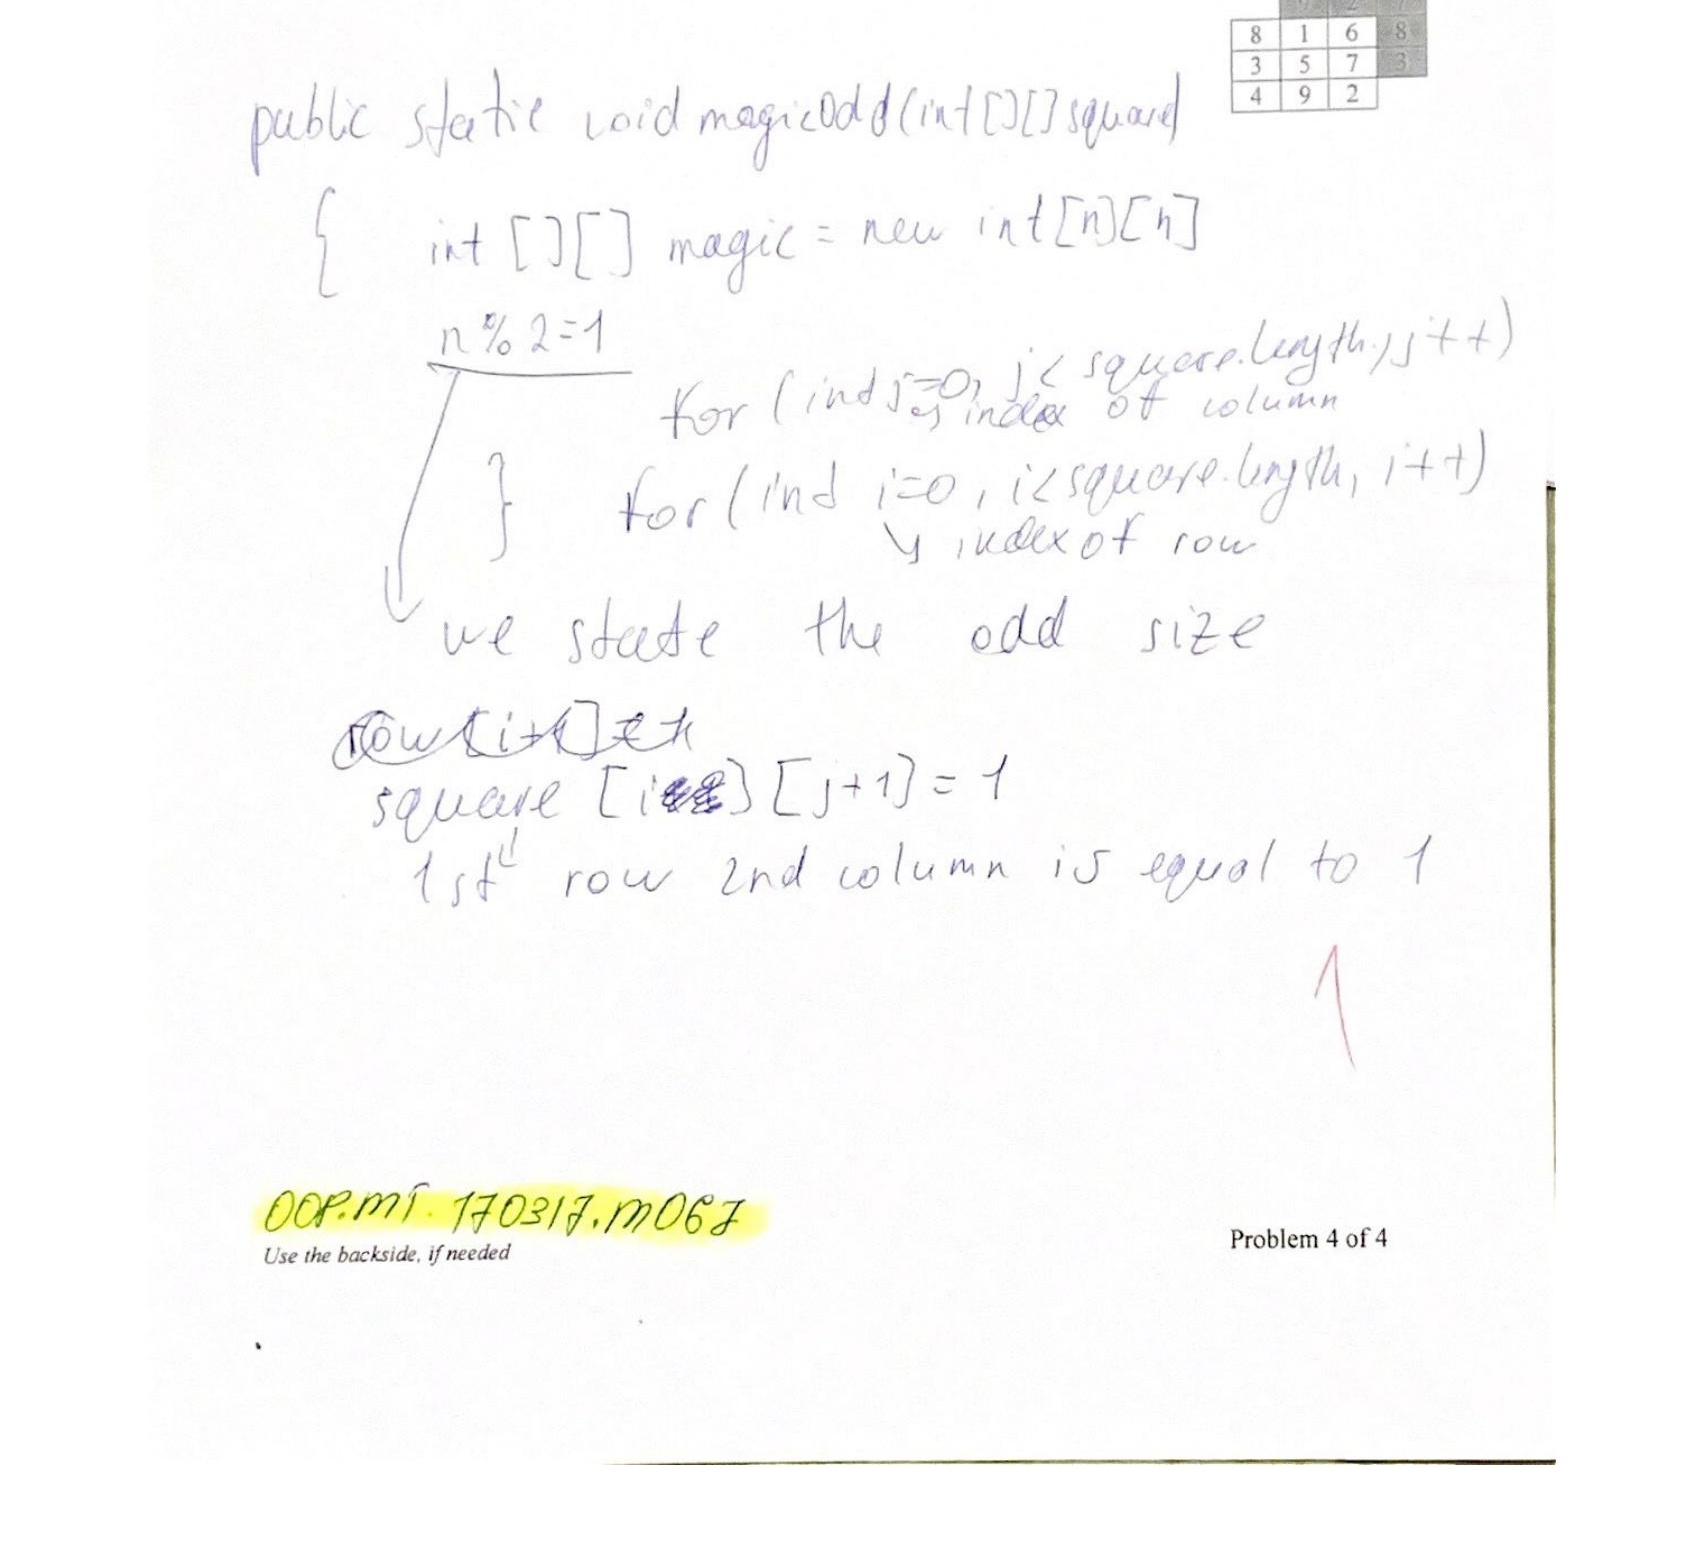 2 7
8 1 6 8
3 5 7 3
4 9 2
public static void magicOdd(int[][] square)
{ int [][] magic = new int[n][n]
n % 2=1
for (int j=0, j< square.length, j++)
↳ index of column
} for (ind i=0, i<square.length, i++)
↘ index of row
we state the odd size
square [i] [j+1] = 1
1st row 2nd column is equal to 1
1
OOP.MT.170317.M067
Use the backside, if needed
Problem 4 of 4